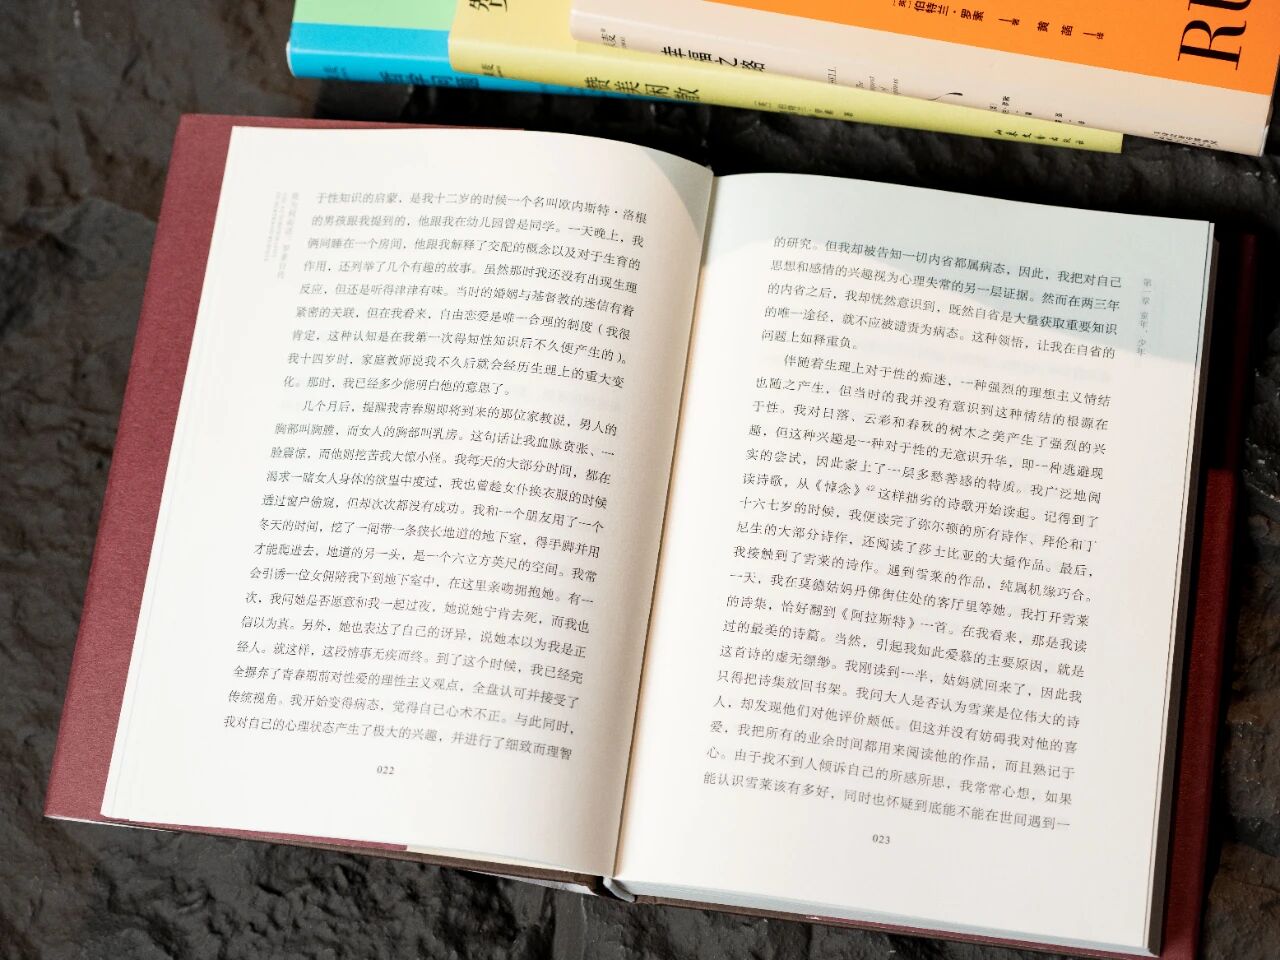 [英]伯特兰·罗素 著
黄菡 译
RU
幸福之路
赞美闲散
哲学问题
于性知识的启蒙，是我十二岁的时候一个名叫欧内斯特·洛根
的男孩跟我提到的，他跟我在幼儿园曾是同学。一天晚上，我
俩同睡在一个房间，他跟我解释了交配的概念以及对于生育的
作用，还列举了几个有趣的故事。虽然那时我还没有出现生理
反应，但还是听得津津有味。当时的婚姻与基督教的迷信有着
紧密的关联，但在我看来，自由恋爱是唯一合理的制度（我很
肯定，这种认知是在我第一次得知性知识后不久便产生的）。
我十四岁时，家庭教师说我不久后就会经历生理上的重大变
化。那时，我已经多少能明白他的意思了。
几个月后，提醒我青春期即将到来的那位家教说，男人的
胸部叫胸膛，而女人的胸部叫乳房。这句话让我血脉贲张、一
脸震惊，而他则挖苦我大惊小怪。我每天的大部分时间，都在
渴求一睹女人身体的欲望中度过，我也曾趁女仆换衣服的时候
透过窗户偷窥，但却次次都没有成功。我和一个朋友用了一个
冬天的时间，挖了一间带一条狭长地道的地下室，得手脚并用
才能爬进去，地道的另一头，是一个六立方英尺的空间。我常
会引诱一位女佣陪我下到地下室中，在这里亲吻拥抱她。有一
次，我问她是否愿意和我一起过夜，她说她宁肯去死，而我也
信以为真。另外，她也表达了自己的讶异，说她本以为我是正
经人。就这样，这段情事无疾而终。到了这个时候，我已经完
全摒弃了青春期前对性爱的理性主义观点，全盘认可并接受了
传统视角。我开始变得病态，觉得自己心术不正。与此同时，
我对自己的心理状态产生了极大的兴趣，并进行了细致而理智
022
第一章 童年、少年
的研究。但我却被告知一切内省都属病态，因此，我把对自己
思想和感情的兴趣视为心理失常的另一层证据。然而在两三年
的内省之后，我却恍然意识到，既然自省是大量获取重要知识
的唯一途径，就不应被谴责为病态。这种领悟，让我在自省的
问题上如释重负。
伴随着生理上对于性的痴迷，一种强烈的理想主义情结
也随之产生，但当时的我并没有意识到这种情结的根源在
于性。我对日落、云彩和春秋的树木之美产生了强烈的兴
趣，但这种兴趣是一种对于性的无意识升华，即一种逃避现
实的尝试，因此蒙上了一层多愁善感的特质。我广泛地阅
读诗歌，从《悼念》42这样拙劣的诗歌开始读起。记得到了
十六七岁的时候，我便读完了弥尔顿的所有诗作、拜伦和丁
尼生的大部分诗作，还阅读了莎士比亚的大量作品。最后，
我接触到了雪莱的诗作。遇到雪莱的作品，纯属机缘巧合。
一天，我在莫德姑妈丹佛街住处的客厅里等她。我打开雪莱
的诗集，恰好翻到《阿拉斯特》一首。在我看来，那是我读
过的最美的诗篇。当然，引起我如此爱慕的主要原因，就是
这首诗的虚无缥缈。我刚读到一半，姑妈就回来了，因此我
只得把诗集放回书架。我问大人是否认为雪莱是位伟大的诗
人，却发现他们对他评价颇低。但这并没有妨碍我对他的喜
爱，我把所有的业余时间都用来阅读他的作品，而且熟记于
心。由于找不到人倾诉自己的所感所思，我常常心想，如果
能认识雪莱该有多好，同时也怀疑到底能不能在世间遇到一
023